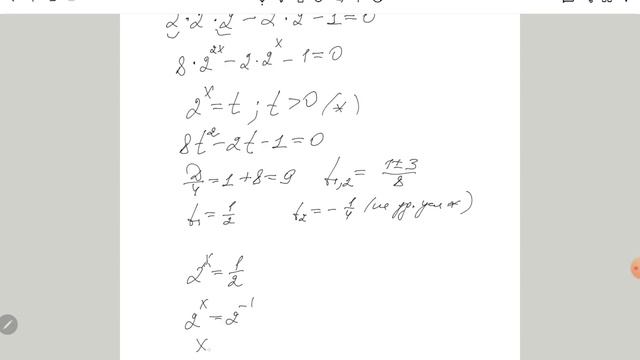 8·2^{2x} - 2·2^x - 1 = 0
2^x = t ; t > 0 (*)
8t^2 - 2t - 1 = 0
D/4 = 1 + 8 = 9 t_{1,2} = (1±3)/8
t_1 = 1/2 t_2 = -1/4 (не уд. усл *)
2^x = 1/2
2^x = 2^{-1}
x